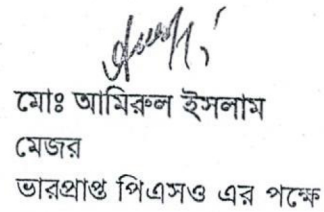 মোঃ আমিরুল ইসলাম
মেজর
ভারপ্রাপ্ত পিএসও এর পক্ষে